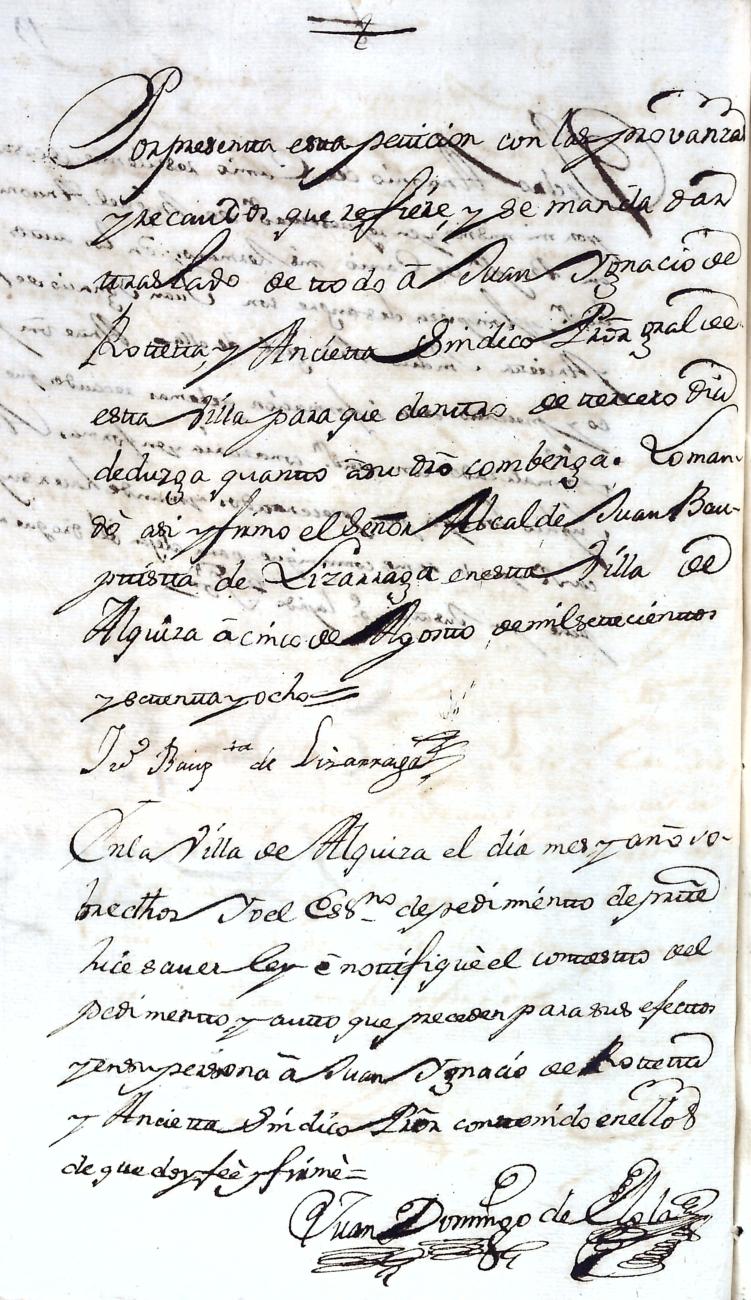 Por presentta estta petticion con las provanzas
y recaudos que refiere, y se manda dar
ttraslado de ttodo â Juan Ygnacio de
Rottetta, y Ancietta Sindico Prõr gral de
estta Villa para que denttro de ttercero dia
deduzga quantto â su dro combenga. Lo man-
dò asi y firmo el Señor Alcalde Juan Bau-
pttistta de Lizarraga en estta Villa de
Alquiza â cinco de Agostto de mil settecienttos
y settentta y ocho =
Juº Baupta de Lizarraga
En la Villa de Alquiza el dia mes y año so-
bredhos Yo el Essno de pedimientto de partte
hice saver ley è nottifiquè el conttestto del
pedimentto y autto que preceden para sus efecttos
y en su persona â Juan Ygnacio de Rottetta
y Ancietta Sindico Prõr conttenido en ellos
de que doy feè y firmè =
Juan Domingo de Elola